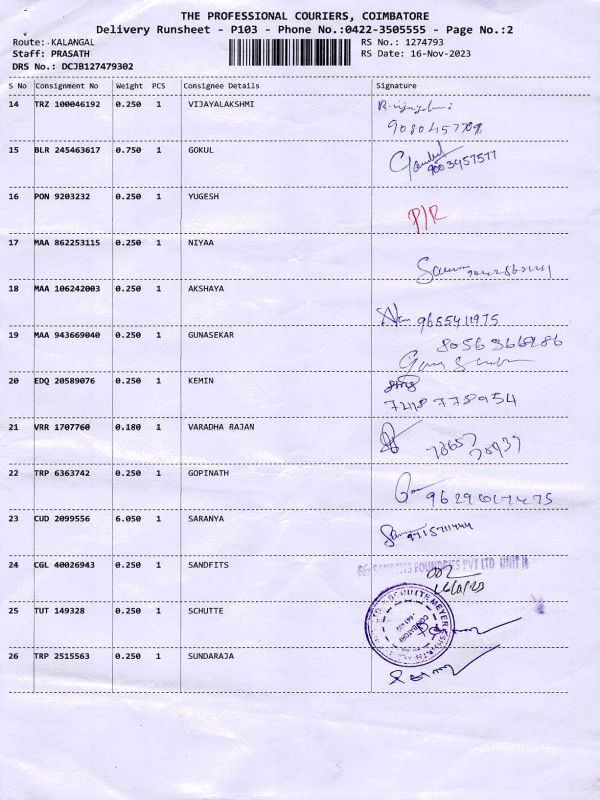 THE PROFESSIONAL COURIERS, COIMBATORE
Delivery Runsheet - P103 - Phone No.:0422-3505555 - Page No.:2
Route: KALANGAL RS No.: 1274793
Staff: PRASATH RS Date: 16-Nov-2023
DRS No.: DCJB127479302
S No Consignment No Weight PCS Consignee Details Signature
14 TRZ 100046192 0.250 1 VIJAYALAKSHMI
15 BLR 245463617 0.750 1 GOKUL
9003457577
16 PON 9203232 0.250 1 YUGESH
P/R
17 MAA 862253115 0.250 1 NIYAA
18 MAA 106242003 0.250 1 AKSHAYA
9655411975
19 MAA 943669040 0.250 1 GUNASEKAR
8056366986
20 EDQ 20589076 0.250 1 KEMIN
7418 778954
21 VRR 1707760 0.180 1 VARADHA RAJAN
22 TRP 6363742 0.250 1 GOPINATH
23 CUD 2099556 6.050 1 SARANYA
24 CGL 40026943 0.250 1 SANDFITS
For SANDFITS FOUNDRIES PVT LTD UNIT II
25 TUT 149328 0.250 1 SCHUTTE
SCHUTTE MEYER
COIMBATORE
26 TRP 2515563 0.250 1 SUNDARAJA